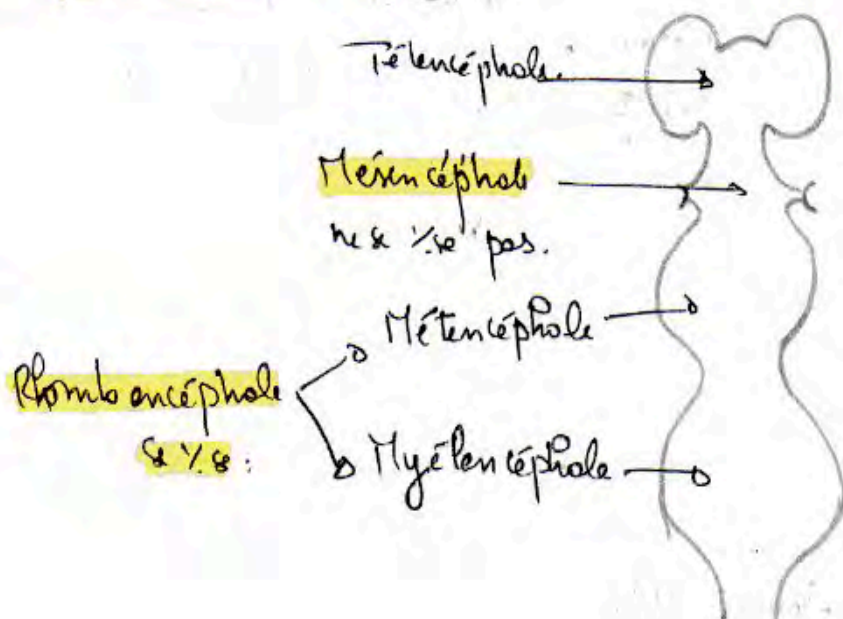 Télencéphale.
Mésencéphale
ne se %se pas.
Métencéphale
Rhombencéphale
se %se :
Myélencéphale